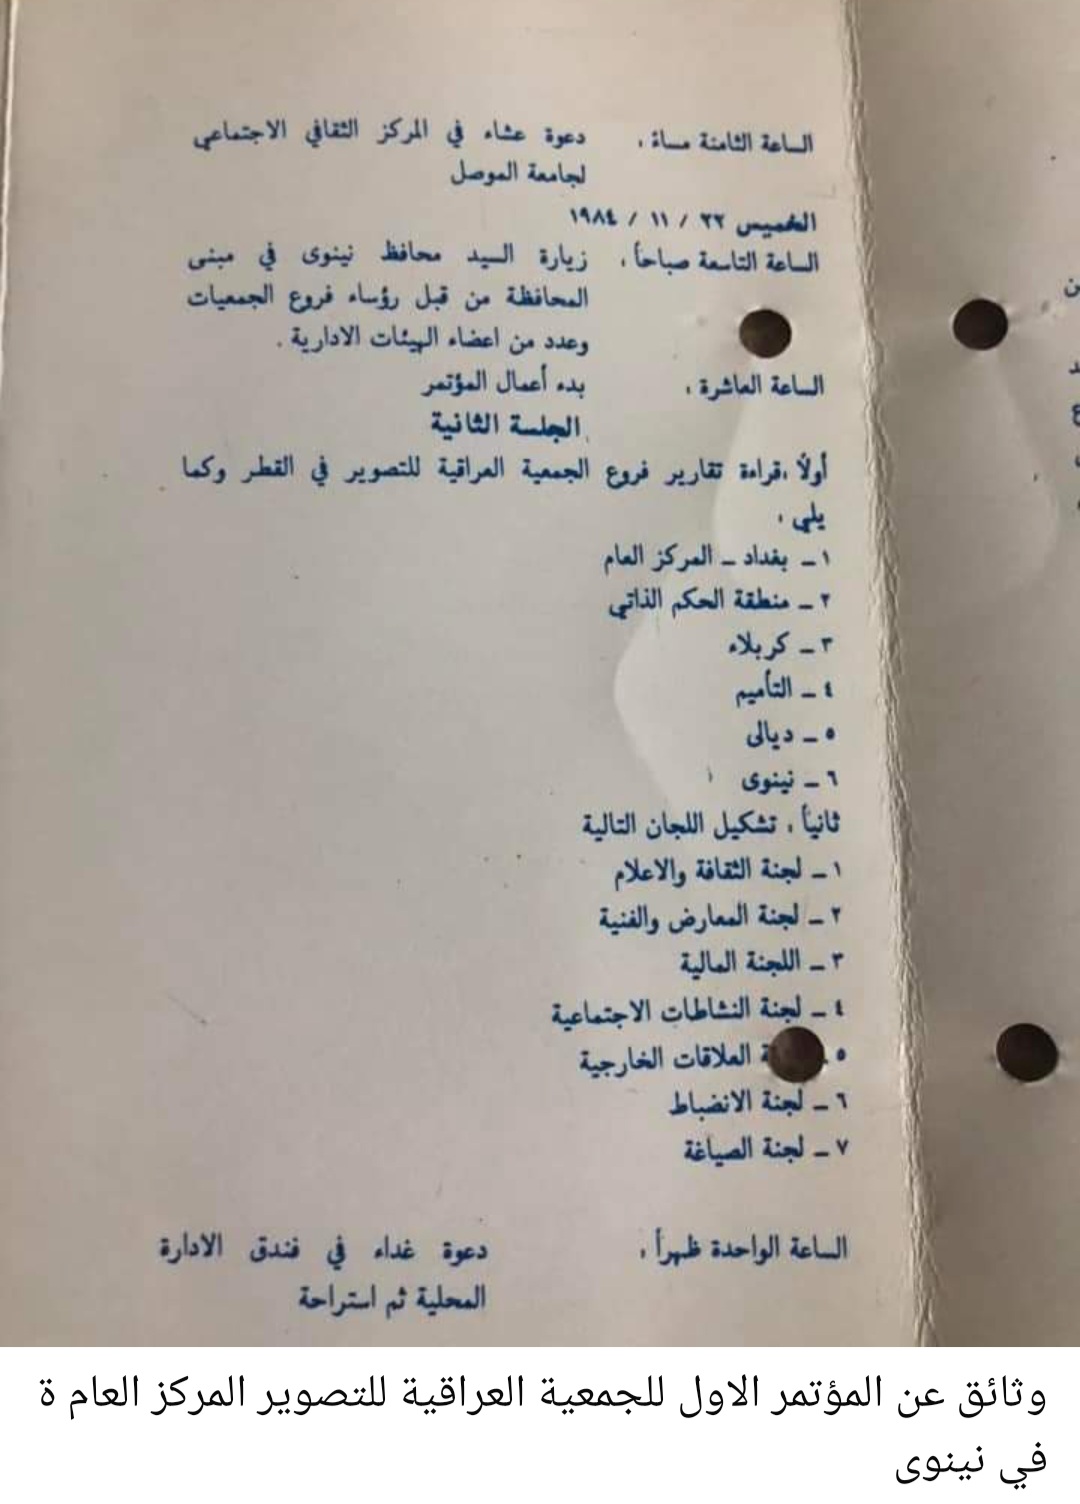 الساعة الثامنة مساءً : دعوة عشاء في المركز الثقافي الاجتماعي
لجامعة الموصل
الخميس ٢٢ / ١١ / ١٩٨٤
الساعة التاسعة صباحاً : زيارة السيد محافظ نينوى في مبنى
المحافظة من قبل رؤساء فروع الجمعيات
وعدد من اعضاء الهيئات الادارية .
الساعة العاشرة : بدء أعمال المؤتمر
الجلسة الثانية
أولاً : قراءة تقارير فروع الجمعية العراقية للتصوير في القطر وكما
يلي :
١ ـ بغداد ـ المركز العام
٢ ـ منطقة الحكم الذاتي
٣ ـ كربلاء
٤ ـ التأميم
٥ ـ ديالى
٦ ـ نينوى
ثانياً : تشكيل اللجان التالية
١ ـ لجنة الثقافة والاعلام
٢ ـ لجنة المعارض والفنية
٣ ـ اللجنة المالية
٤ ـ لجنة النشاطات الاجتماعية
٥ العلاقات الخارجية
٦ ـ لجنة الانضباط
٧ ـ لجنة الصياغة
الساعة الواحدة ظهراً : دعوة غداء في فندق الادارة
المحلية ثم استراحة
وثائق عن المؤتمر الاول للجمعية العراقية للتصوير المركز العام ة
في نينوى